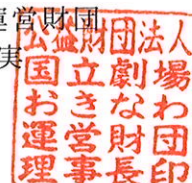 運営財団
実
公益財団法人
国立劇場
おきなわ
運営財団
理事長印